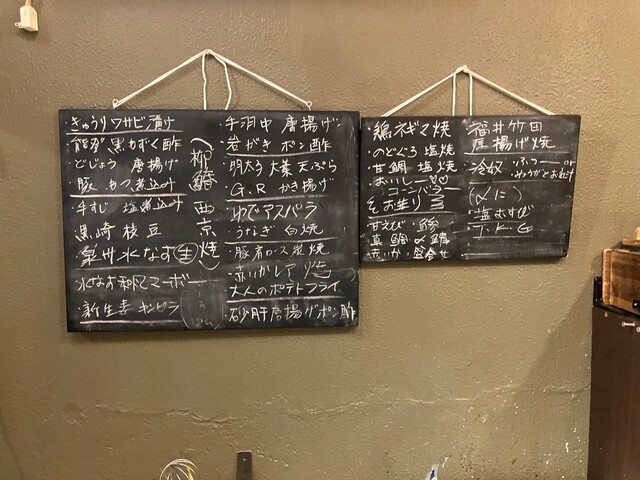 きゅうりワサビ漬け
能登 黒もずく酢
どじょう 唐揚げ
豚 もつ煮込み
牛すじ 塩煮込み
黒崎 枝豆
泉州水なす 生
水なす和风マーボー
新生姜 キンピラ
柳鰆 西京焼
手羽中 唐揚げ
岩がき ポン酢
明太子 大葉 天ぷら
G.R かき揚げ
ゆでアスパラ
うなぎ 白焼
豚肩ロース 炭焼
赤いかレア 焼
大人のポテトフライ
砂肝唐揚げポン酢
鶏ネギマ焼
のどぐろ 塩焼
甘鯛 塩焼
おいしー♡♡
コニーバラー
甘えび
真鯛 〆鯖
赤いか 盛合せ
福井竹田
厚揚げ焼
冷奴 ふつー or
みょうがとおくら
(〆に)
塩むすび
T.K.G